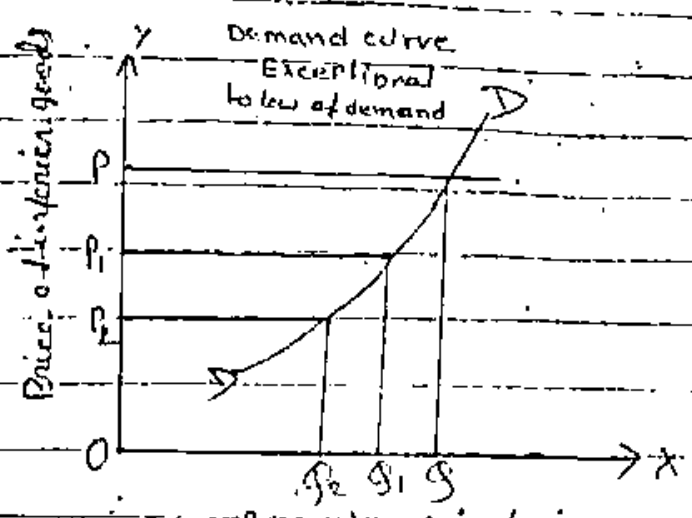 Y
Demand curve
Exceptional
to low of demand
D
Price of inferior goods
P
P1
P2
D
O
q2 q1 q
X